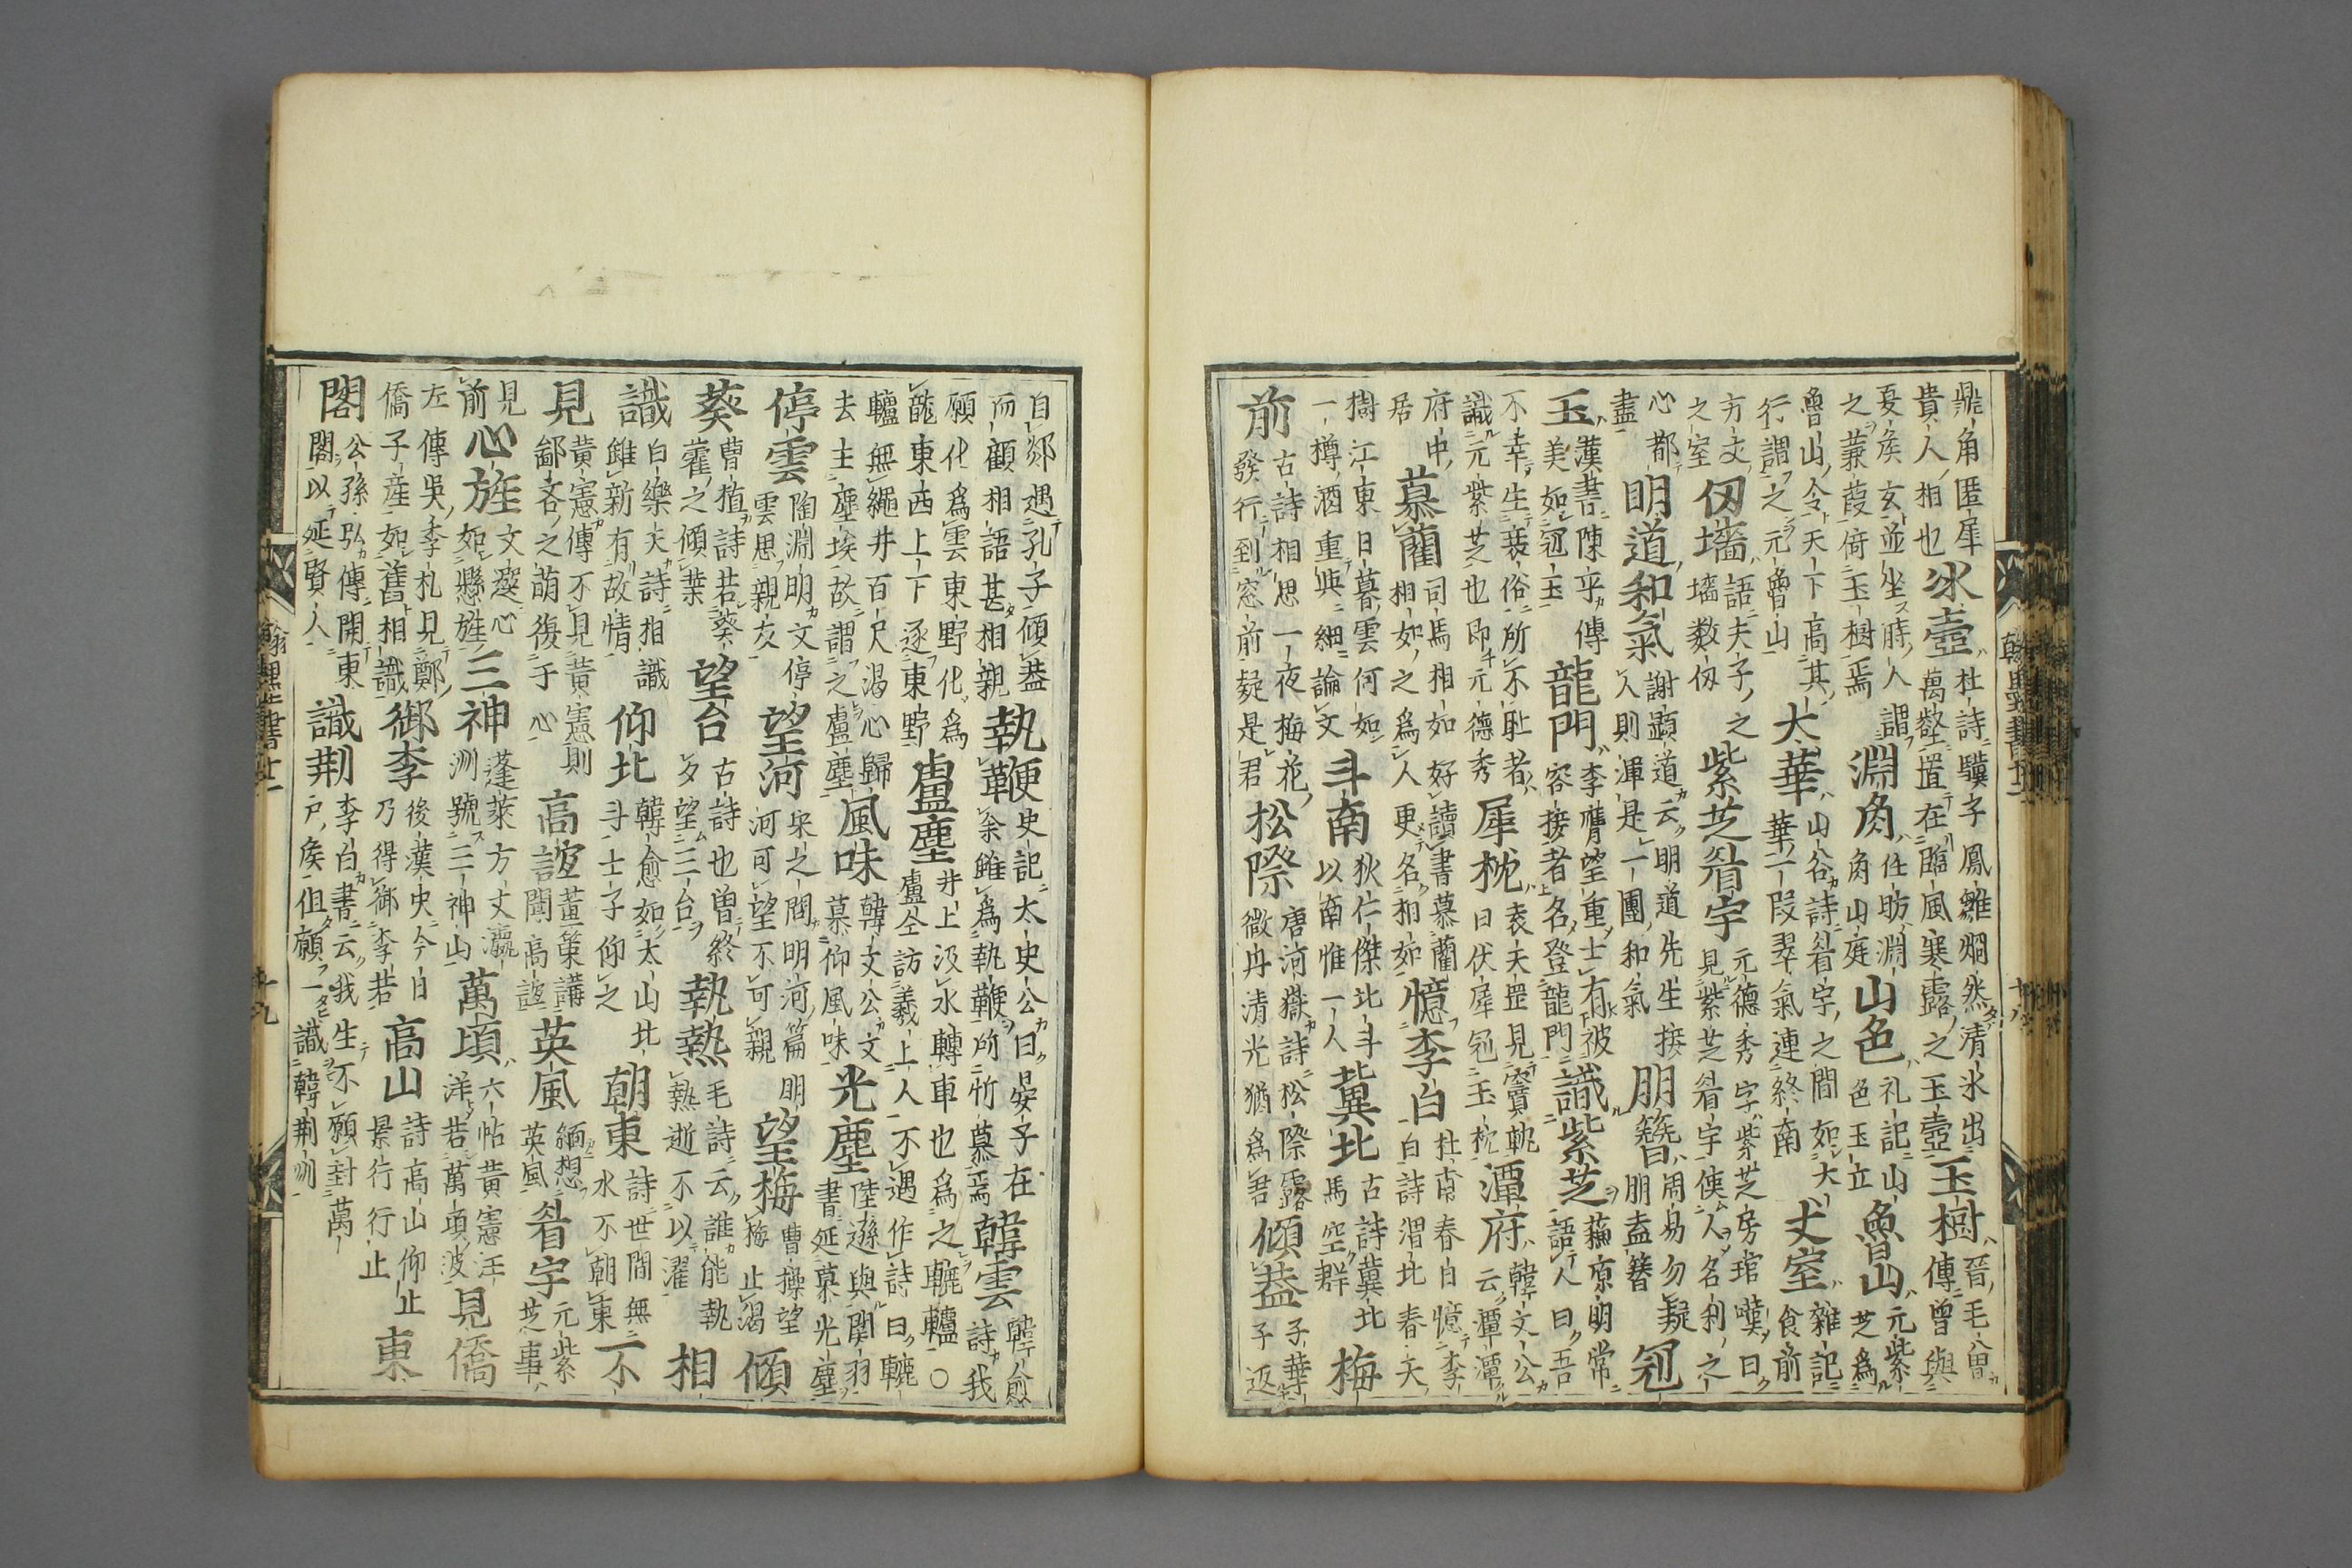 鼎角匿犀貴人相也冰壺杜詩驥子鳳雛烱然清氷出萬壑置在臨風寒露之玉壺玉樹晉毛曾傳曾與
夏侯玄並坐時人謂之蒹葭倚玉樹焉淵角任昉淵角山庭山色礼記山色玉立魯山元紫芝爲
魯山令天下高其行謂之元魯山太華山谷詩眉宇之間如大華二段翠氣連終南丈室雜記食前
方丈之室仭墻語夫子之墻数仭紫芝眉宇元德秀字紫芝房琯嘆曰見紫芝眉宇使人名利之
心都盡明道和氣謝顕道云明道先生接人則渾是一團和氣朋簪周易勿疑朋盍簪冠
玉漢書陳平傳美如冠玉龍門李膺望重士有被容接者名登龍門識紫芝蘓源明常語人曰吾
不幸生衰俗所不耻者識元紫芝也即元德秀犀枕袁天罡見竇軌曰伏犀冠玉枕潭府韓文公云潭潭
府中居慕藺司馬相如好讀書慕藺相如之爲人更名相如憶李白杜甫春日憶李白詩渭北春天
樹江東日暮雲何如一樽酒重與細論文斗南狄仁傑北斗以南惟一人冀北古詩冀北馬空群梅
前古詩相思一夜梅花發行到窓前疑是君松際唐河嶽詩松際露微冉清光猶爲君傾葢子華子返
自郯遇孔子傾葢而顧相語甚相親執鞭史記太史公曰晏子在余雖爲執鞭所忻慕焉韓雲韓愈詩我
願化爲雲東野化爲龍東西上下逐東野盧塵井上汲水轉車也爲之轆轤〇盧仝訪羲上人不遇作詩曰轆
轤無繩井百尺渴心歸去主塵埃故謂之盧塵風味韓文公文慕仰風味光塵陸遜與関羽書延慕光塵
停雲陶淵明文停雲思親友望河宋之問明河篇明河可望不可親望梅曹操望梅止渴傾
葵曹植詩若葵藿之傾葉望台古詩也曽終夕望三台執熱毛詩云誰能執熱逝不以濯相
識白樂天詩相識雖新有故情仰北韓愈如太山北斗士子仰之朝東詩世間無水不朝東不
見黄憲傳不見黄憲則鄙吝之萠復于心高誼董策講聞高誼英風緬想英風眉宇元紫芝事
見前心旌文選心如懸旌三神蓬萊方丈瀛洲號三神山萬頃六帖黄憲汪洋若萬頃波見僑
左傳吳季札見鄭僑子産如舊相識御李後漢史今日乃得御李君高山詩高山仰止景行行止東
閣公孫弘傳開東閣以延賢人識荆李白書云我生不願封萬户侯但願一識韓荆州
十九